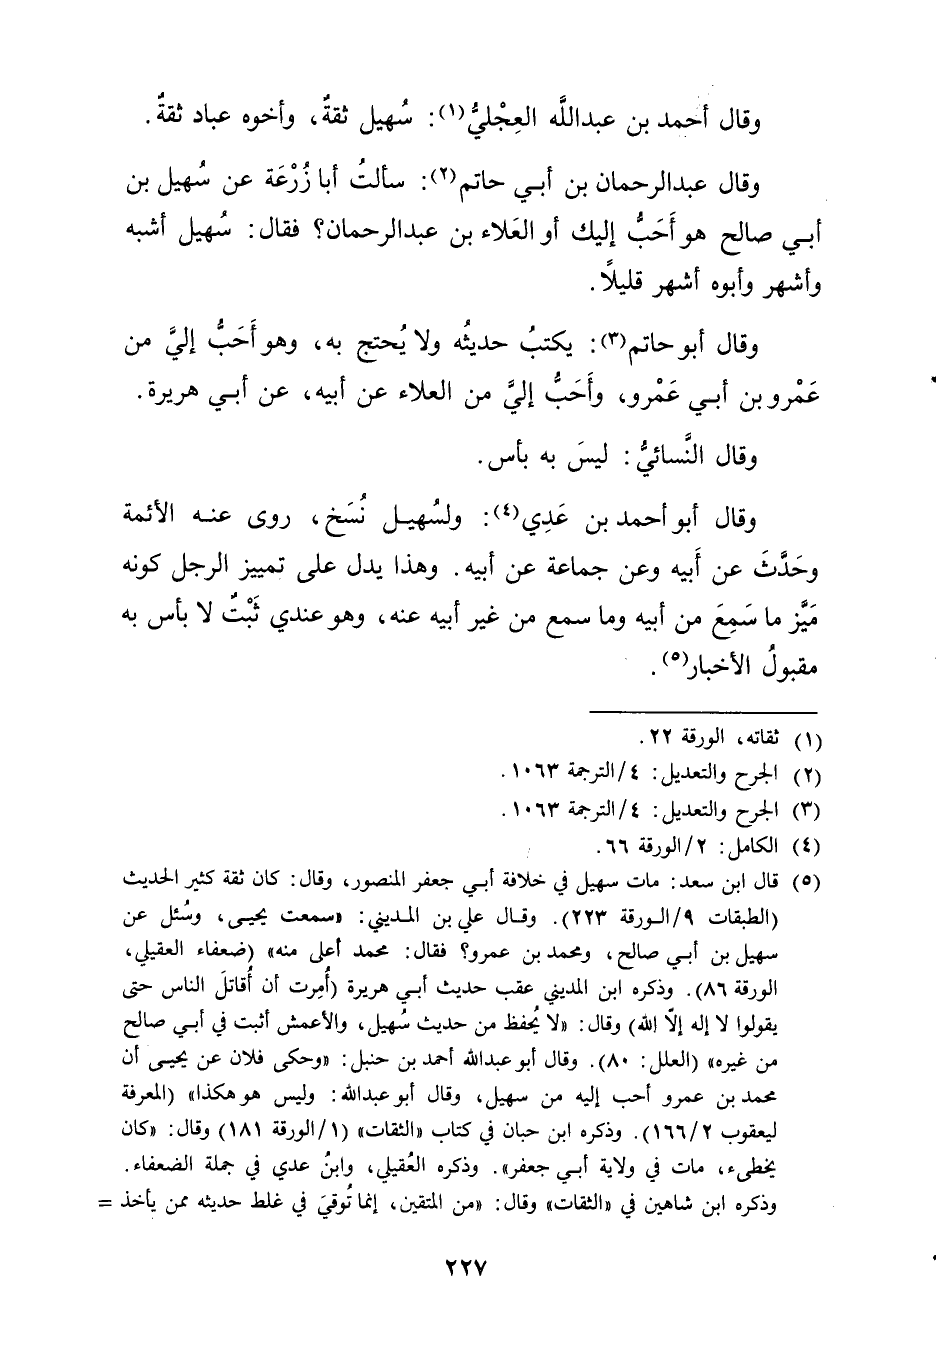 وقال أحمد بن عبدالله العِجْليُّ(١): سُهيل ثقةٌ، وأخوه عباد ثقةٌ.
وقال عبدالرحمان بن أبي حاتم(٢): سألتُ أبا زُرْعَة عن سُهيل بن
أبي صالح هو أَحَبُّ إليك أو العَلاء بن عبدالرحمان؟ فقال: سُهيل أشبه
وأشهر وأبوه أشهر قليلًا.
وقال أبو حاتم(٣): يكتبُ حديثُه ولا يُحتج به، وهو أَحَبُّ إليَّ من
عَمْرو بن أبي عَمْرو، وأَحَبُّ إليَّ من العلاء عن أبيه، عن أبي هريرة.
وقال النَّسائيُّ: ليسَ به بأس.
وقال أبو أحمد بن عَدِي(٤): ولسُهيل نُسَخ، روى عنه الأئمة
وحَدَّثَ عن أَبيه وعن جماعة عن أبيه. وهذا يدل على تمييز الرجل كونه
مَيَّز ما سَمِعَ من أبيه وما سمع من غير أبيه عنه، وهو عندي ثَبْتٌ لا بأس به
مقبولُ الأخبار(٥).
(١) ثقاته، الورقة ٢٢.
(٢) الجرح والتعديل: ٤/الترجمة ١٠٦٣.
(٣) الجرح والتعديل: ٤/الترجمة ١٠٦٣.
(٤) الكامل: ٢/الورقة ٦٦.
(٥) قال ابن سعد: مات سهيل في خلافة أبي جعفر المنصور، وقال: كان ثقة كثير الحديث
(الطبقات ٩/الورقة ٢٢٣). وقال علي بن المديني: «سمعت يحيى، وسُئل عن
سهيل بن أبي صالح، ومحمد بن عمرو؟ فقال: محمد أعلى منه» (ضعفاء العقيلي،
الورقة ٨٦). وذكره ابن المديني عقب حديث أبي هريرة (أُمِرت أن أُقاتلَ الناس حتى
يقولوا لا إله إلّا الله) وقال: «لا يُحفظ من حديث سُهيل، والأعمش أثبت في أبي صالح
من غيره» (العلل: ٨٠). وقال أبو عبدالله أحمد بن حنبل: «وحكى فلان عن يحيى أن
محمد بن عمرو أحب إليه من سهيل، وقال أبو عبدالله: وليس هو هكذا» (المعرفة
ليعقوب ٢/١٦٦). وذكره ابن حبان في كتاب «الثقات» (١/الورقة ١٨١) وقال: «كان
يخطىء، مات في ولاية أبي جعفر». وذكره العُقيلي، وابنُ عدي في جملة الضعفاء.
وذكره ابن شاهين في «الثقات» وقال: «من المتقين، إنما تُوقيَ في غلط حديثه ممن يأخذ =
٢٢٧